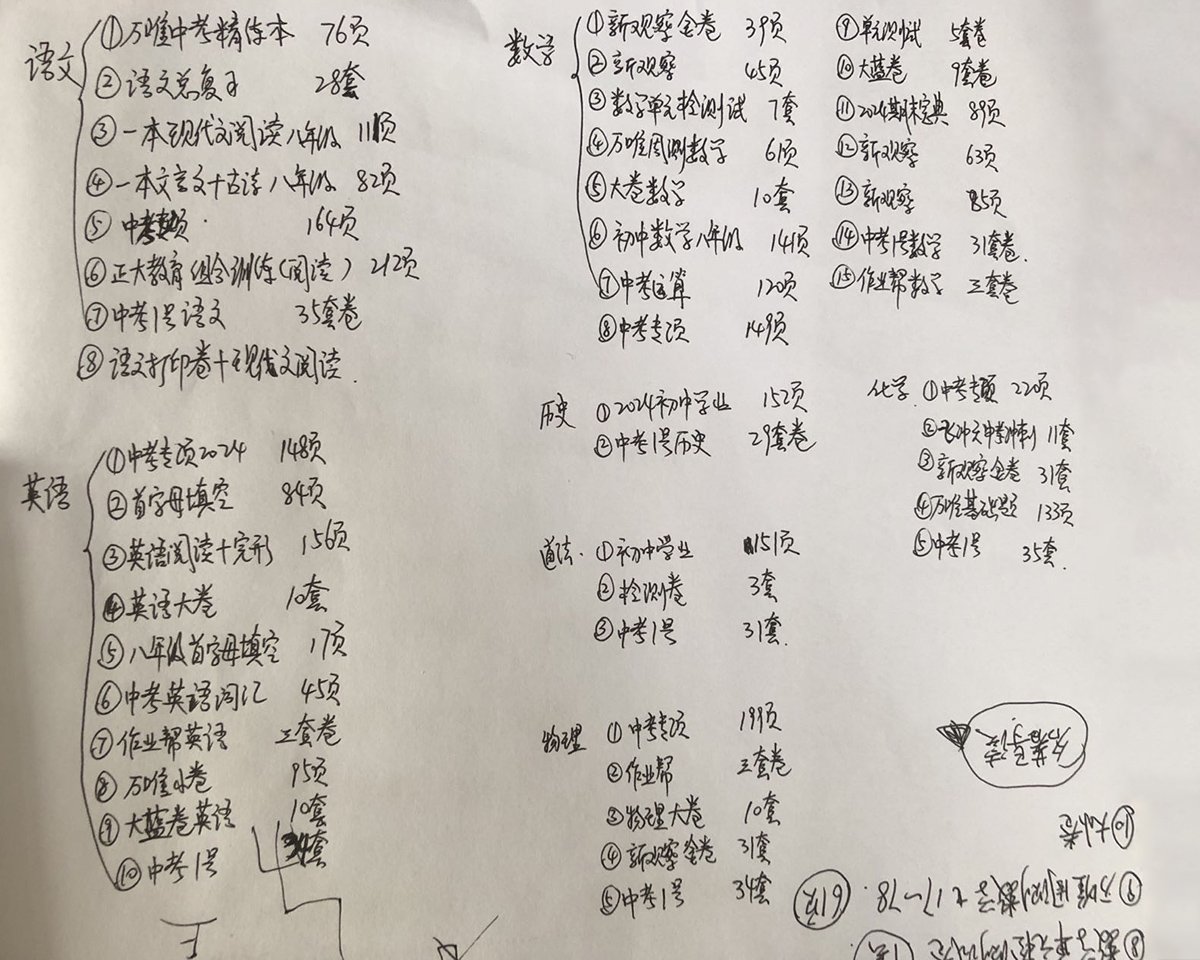 语文
①万唯中考精练本 76页
②语文总复习 28套
③一本现代文阅读八年级 111页
④一本文言文十古诗八年级 82页
⑤中考专项 164页
⑥正大教育组合训练(阅读) 212页
⑦中考1号语文 35套卷
⑧语文打印卷十现代文阅读.
英语
①中考专项2024 148页
②首字母填空 84页
③英语阅读十完形 156页
④英语大卷 10套
⑤八年级首字母填空 17页
⑥中考英语词汇 45页
⑦作业帮英语 三套卷
⑧万唯小卷 95页
⑨大蓝卷英语 10套
⑩中考1号 34套
数学
①新观察金卷 39页
②新观察 45页
③数学单元检测试 7套
④万唯周测数学 61页
⑤大卷数学 10套
⑥初中数学八年级 141页
⑦中考运算 120页
⑧中考专项 149页
⑨单元测试 5套卷
⑩大蓝卷 9套卷
⑪2024期末宝典 89页
⑫新观察 63页
⑬新观察 85页
⑭中考1号数学 31套卷.
⑮作业帮数学 三套卷
历史
①2024初中学业 152页
②中考1号历史 29套卷
道法.
①初中学业 151页
②检测卷 3套
③中考1号 31套.
物理
①中考专项 199页
②作业帮 三套卷
③物理大卷 10套
④新观察金卷 31套
⑤中考1号 34套
化学
①中考专项 220页
②飞冲天中考冲刺 11套
③新观察金卷 31套
④万唯基础题 133页
⑤中考1号 35套.
⑧数学单元检测试卷
⑨万唯周测数学 17~78. 61页
⑩大小卷